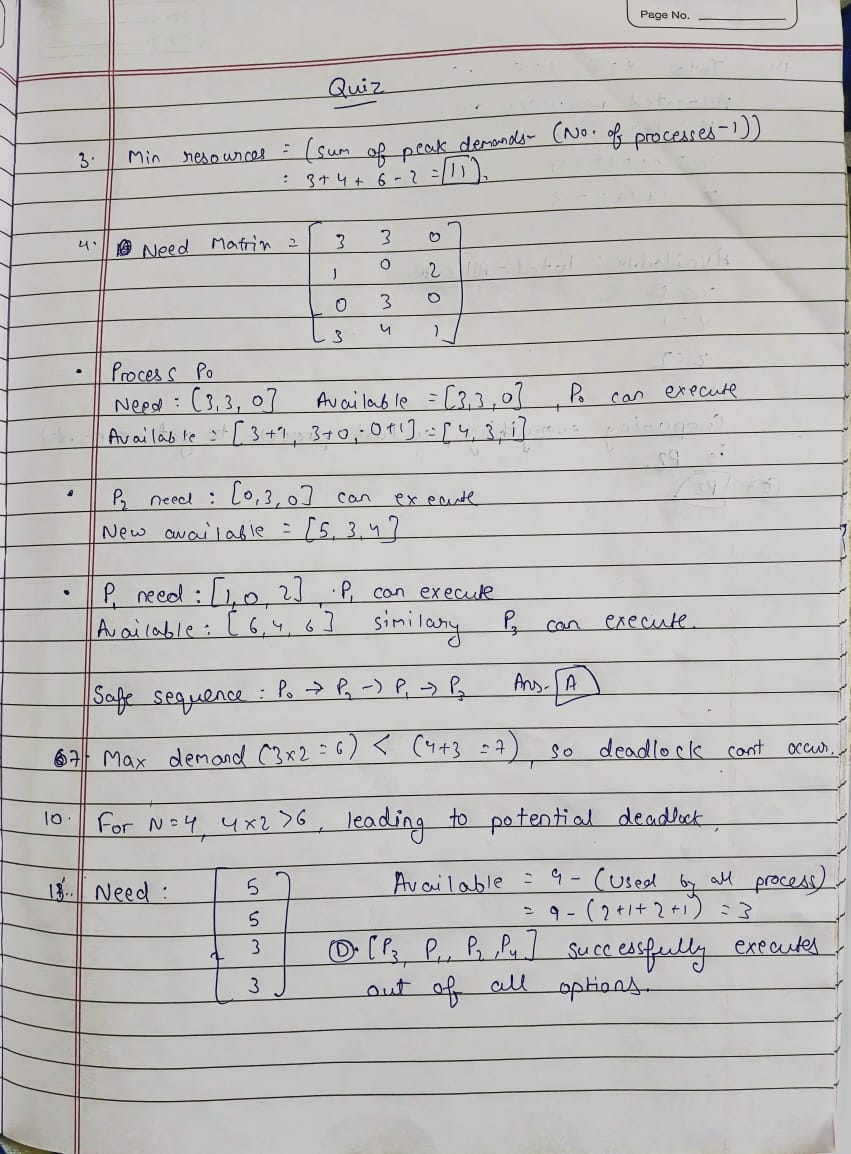 Page No.
Quiz
3. Min resources = (sum of peak demands - (No. of processes-1))
: 3+4+6-2 = 11.
4. Need Matrix =
3 3 0
1 0 2
0 3 0
3 4 1
• Process P0
Need : [3,3,0] Available = [3,3,0], P0 can execute
Available = [3+1, 3+0, 0+1] = [4,3,1]
• P2 need : [0,3,0] can execute
New available = [5,3,4]
• P1 need : [1,0,2] . P1 can execute
Available : [6,4,6] similary P3 can execute.
Safe sequence : P0 → P2 → P1 → P3 Ans. A
7. Max demand (3x2=6) < (4+3=7), so deadlock cant occur.
10. For N=4, 4x2>6, leading to potential deadlock.
Need : Available = 9 - (used by all process)
5
5 = 9-(2+1+2+1) = 3
3 D. [P3, P1, P2, P4] successfully executes
3 out of all options.